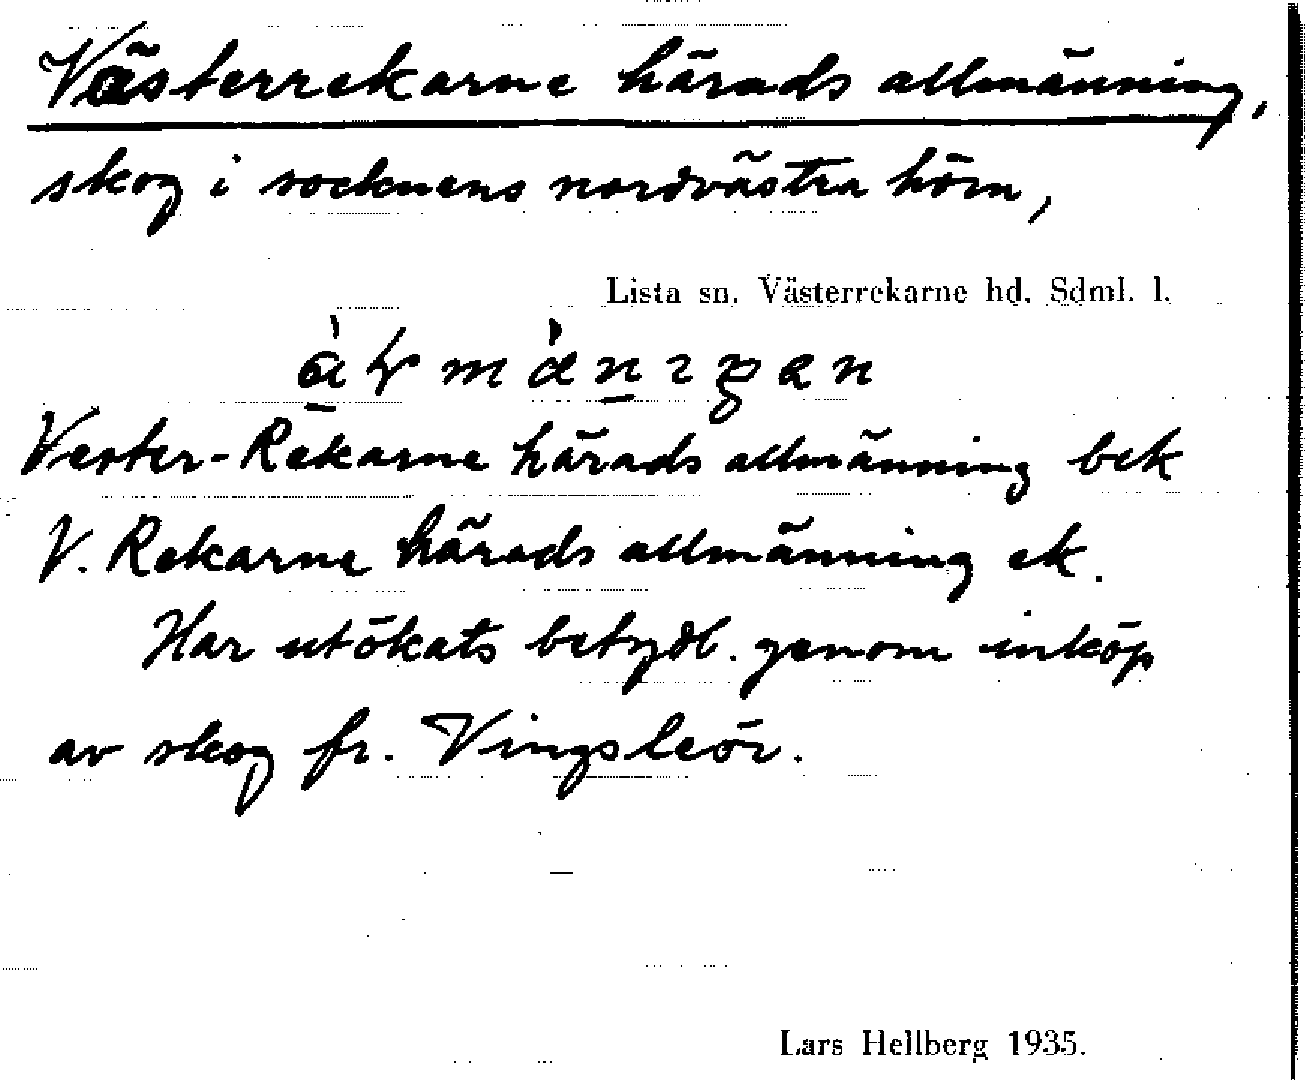 Västerrekarne härads allmänning,
skog i socknens nordvästra hörn,
Lista sn. Västerrekarne hd. Sdml. l.
Vester-Rekarne härads allmänning bek
V. Rekarne härads allmänning ek.
Har utökats betydl. genom inköp
av skog fr. Vingsleör.
Lars Hellberg 1935.